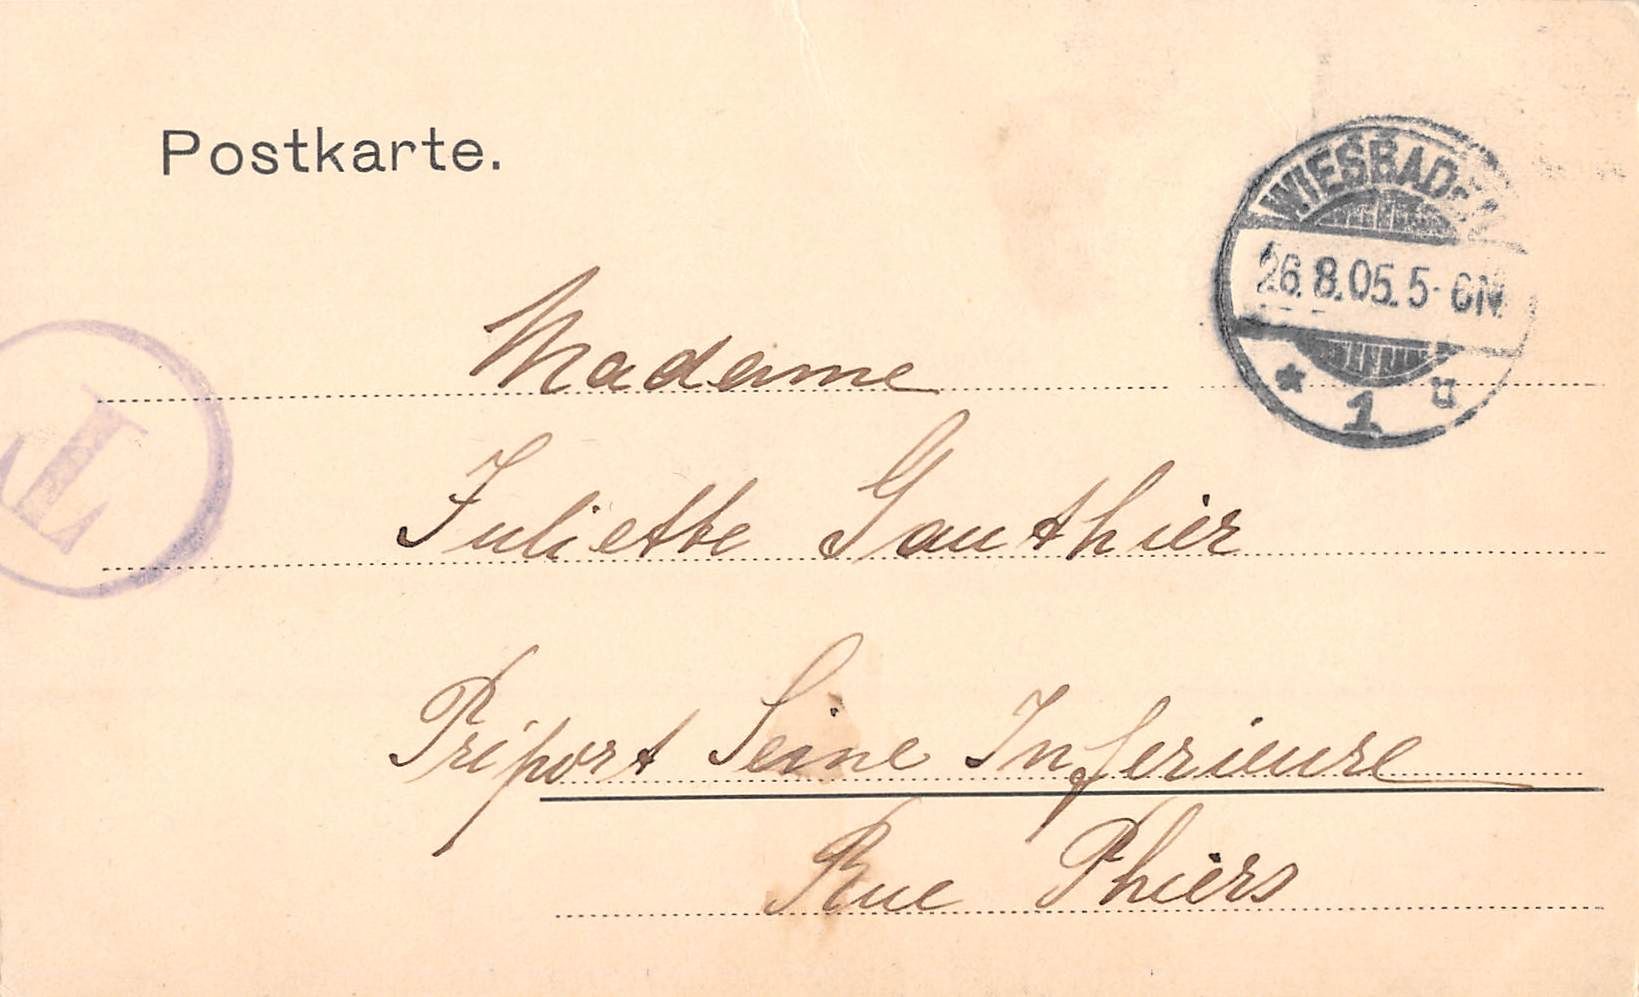 Postkarte.
WIESBADEN
26.8.05.5-6N.
* 1 ü
T
Madame
Juliette Gauthier
Tréport Seine Inferieure
Rue Thiers